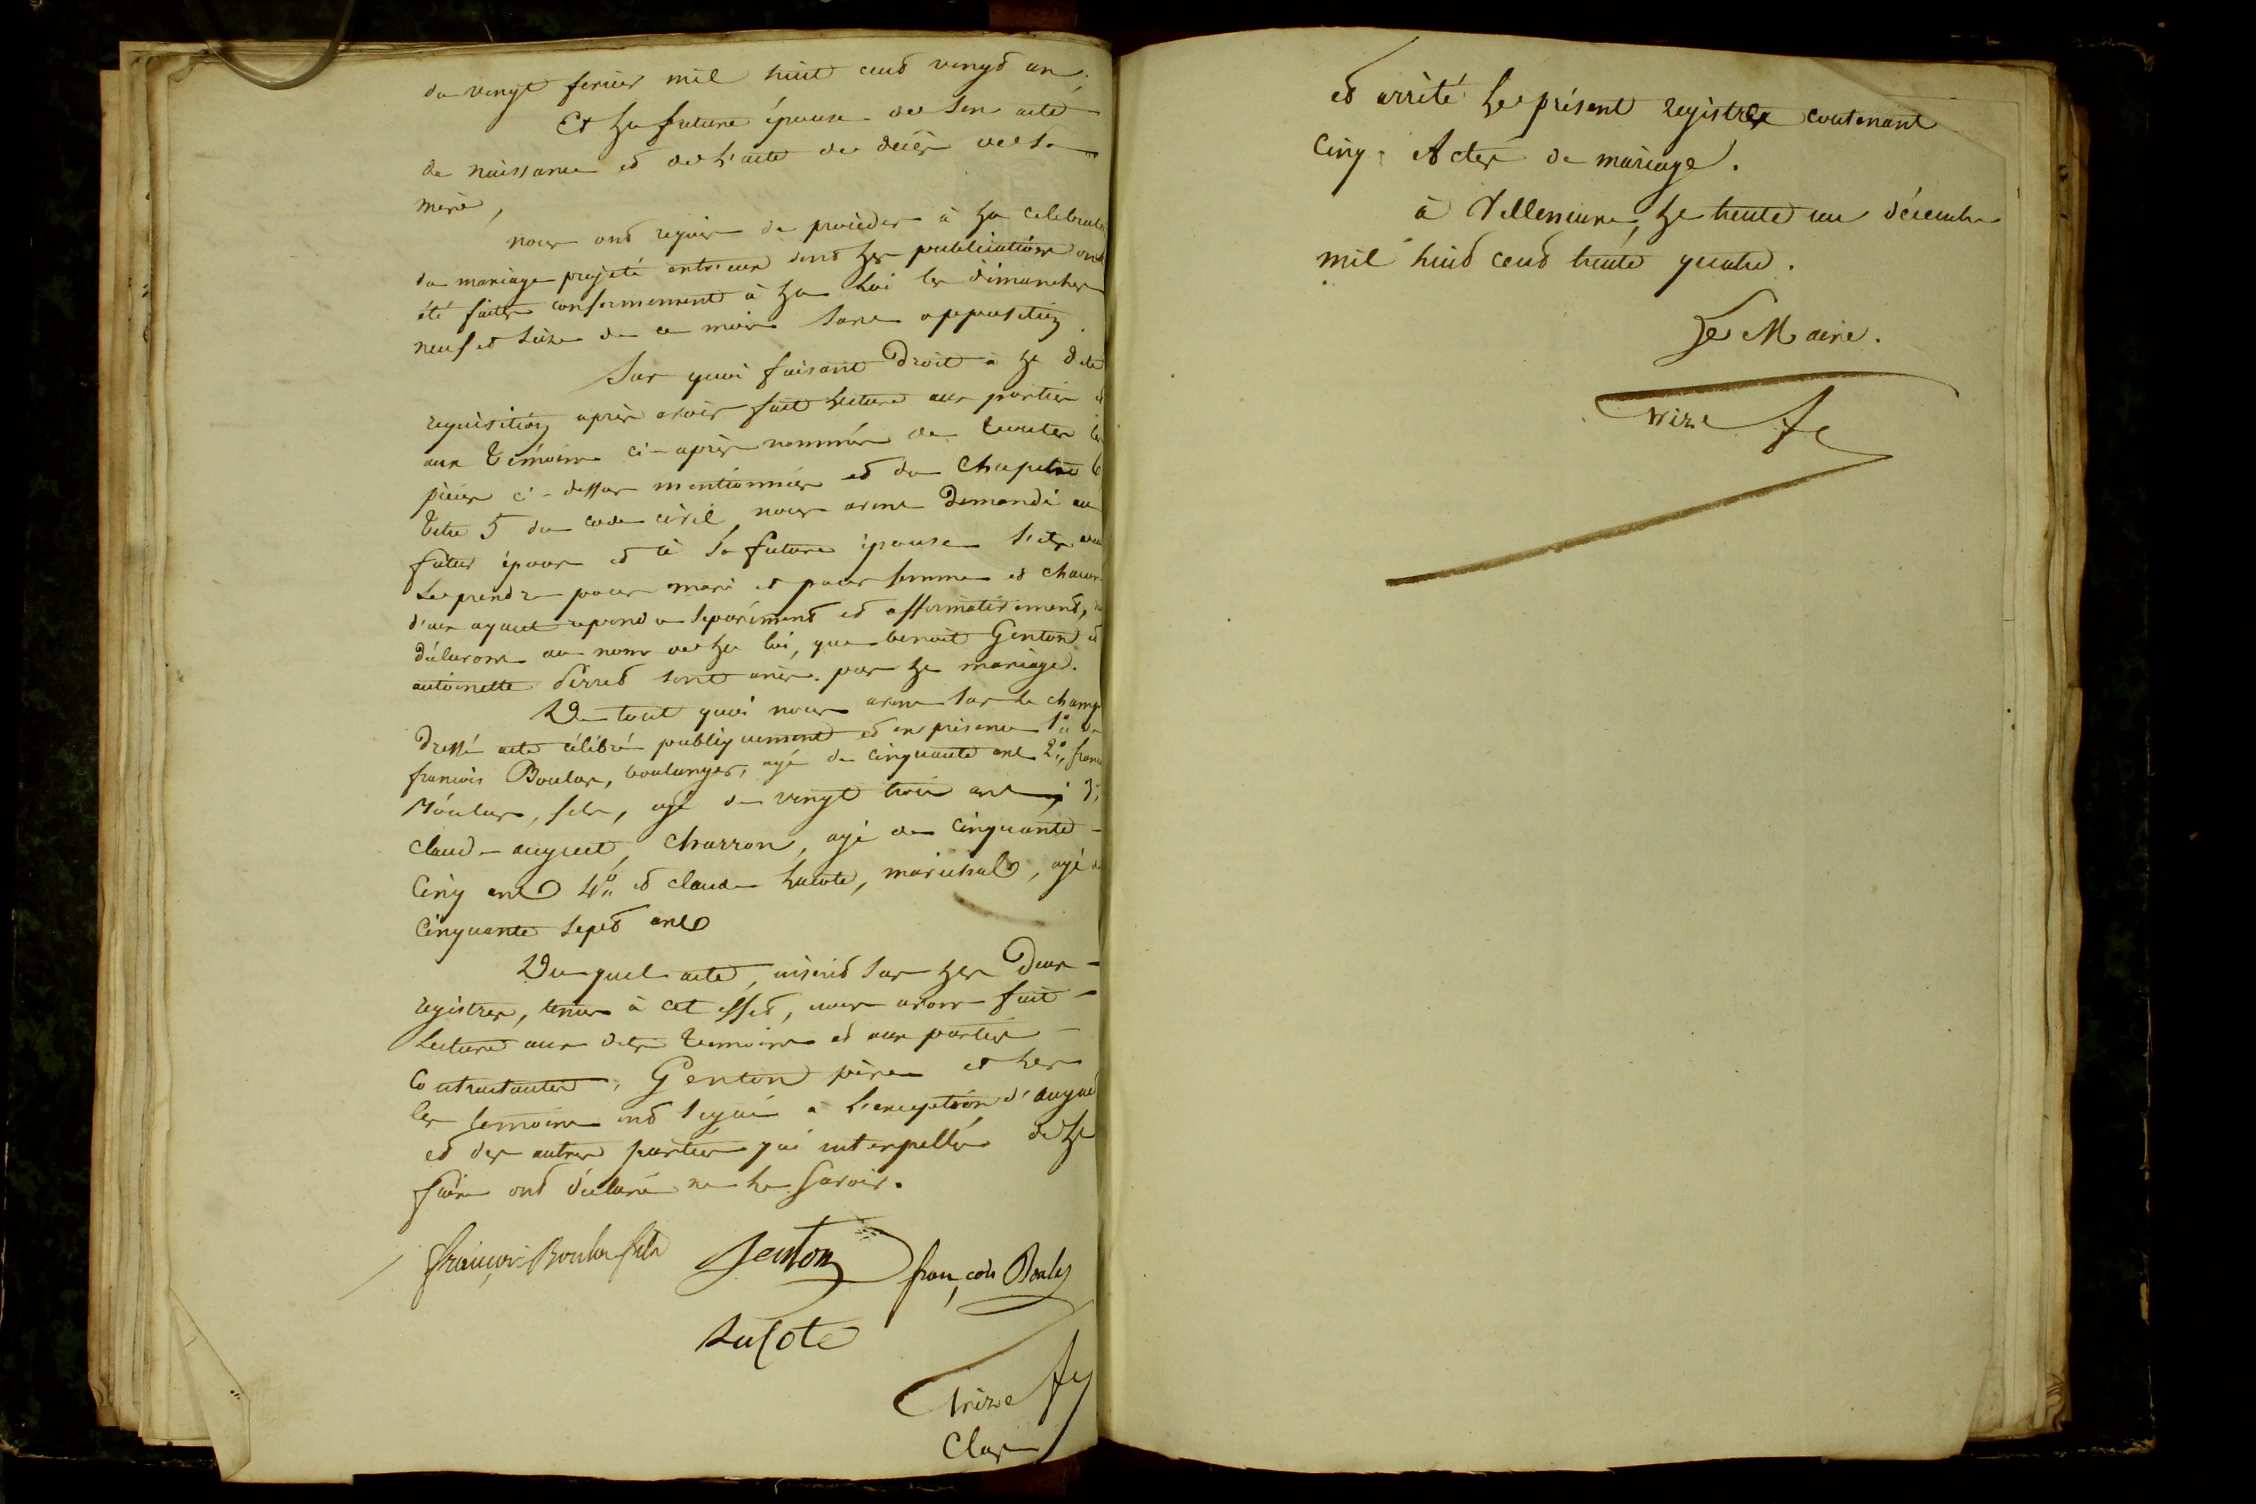 du vingt fevrier mil huit cend vingd un.
Et la future épouse de son acte
de naissance ed de l'acte de décès de sa
mère,
nous ond requis de procéder à la celebrati
du mariage projeté entr'eux dond les publications ond
été faites conformement à la loi les dimanches
neuf et seize de ce mois sans opposition.
Sur quoi faisant Droit à la dite
requisition après avoir fait lecture aux parties
aux témoins ci-après nommés de toutes les
pièces ci-dessus mentionnées ed du Chapitre 6
titre 5 du code civil, nous avons Demandé au
futur époux ed à la future épouse s'ils
se prendre pour mari et pour femme ed chacun
d'eux ayant repondu séparémend ed affirmativemend,
déclarons au nom de la loi, que benoit Genton ed
antoinette Perred sont unis par le mariage.
De tout quoi nous avons sur le champ
Dressé acte célébré publiquement ed en présence 1° de
francois Boulas, boulanger, agé de cinquante ans 2°
Boulas, fils, agé de vingt trois ans, 3°
Claud-auguet, charron, agé de cinquante
cinq ans 4° ed claude Lacote, maréchal, agé
cinquante sepd ans
Du quel acte, inscrid sur les Deux
registres, tenus à cet effed, nous avons fait
lecture aux dits temoins ed aux parties
contractantes, Genton père et les
les temoins ond signé à l'exception d'auguet
ed des autres parties qui interpellés de le
faire ond déclaré ne le savoir.
françois Boulas fils Jenton françois Boulas
LaCote
trize
Clos
ed arrêté le présent registre contenant
Cinq Actes de mariage.
à Villemure, le trente un décembre
mil huid cend trente quatre.
Le Maire.
trize